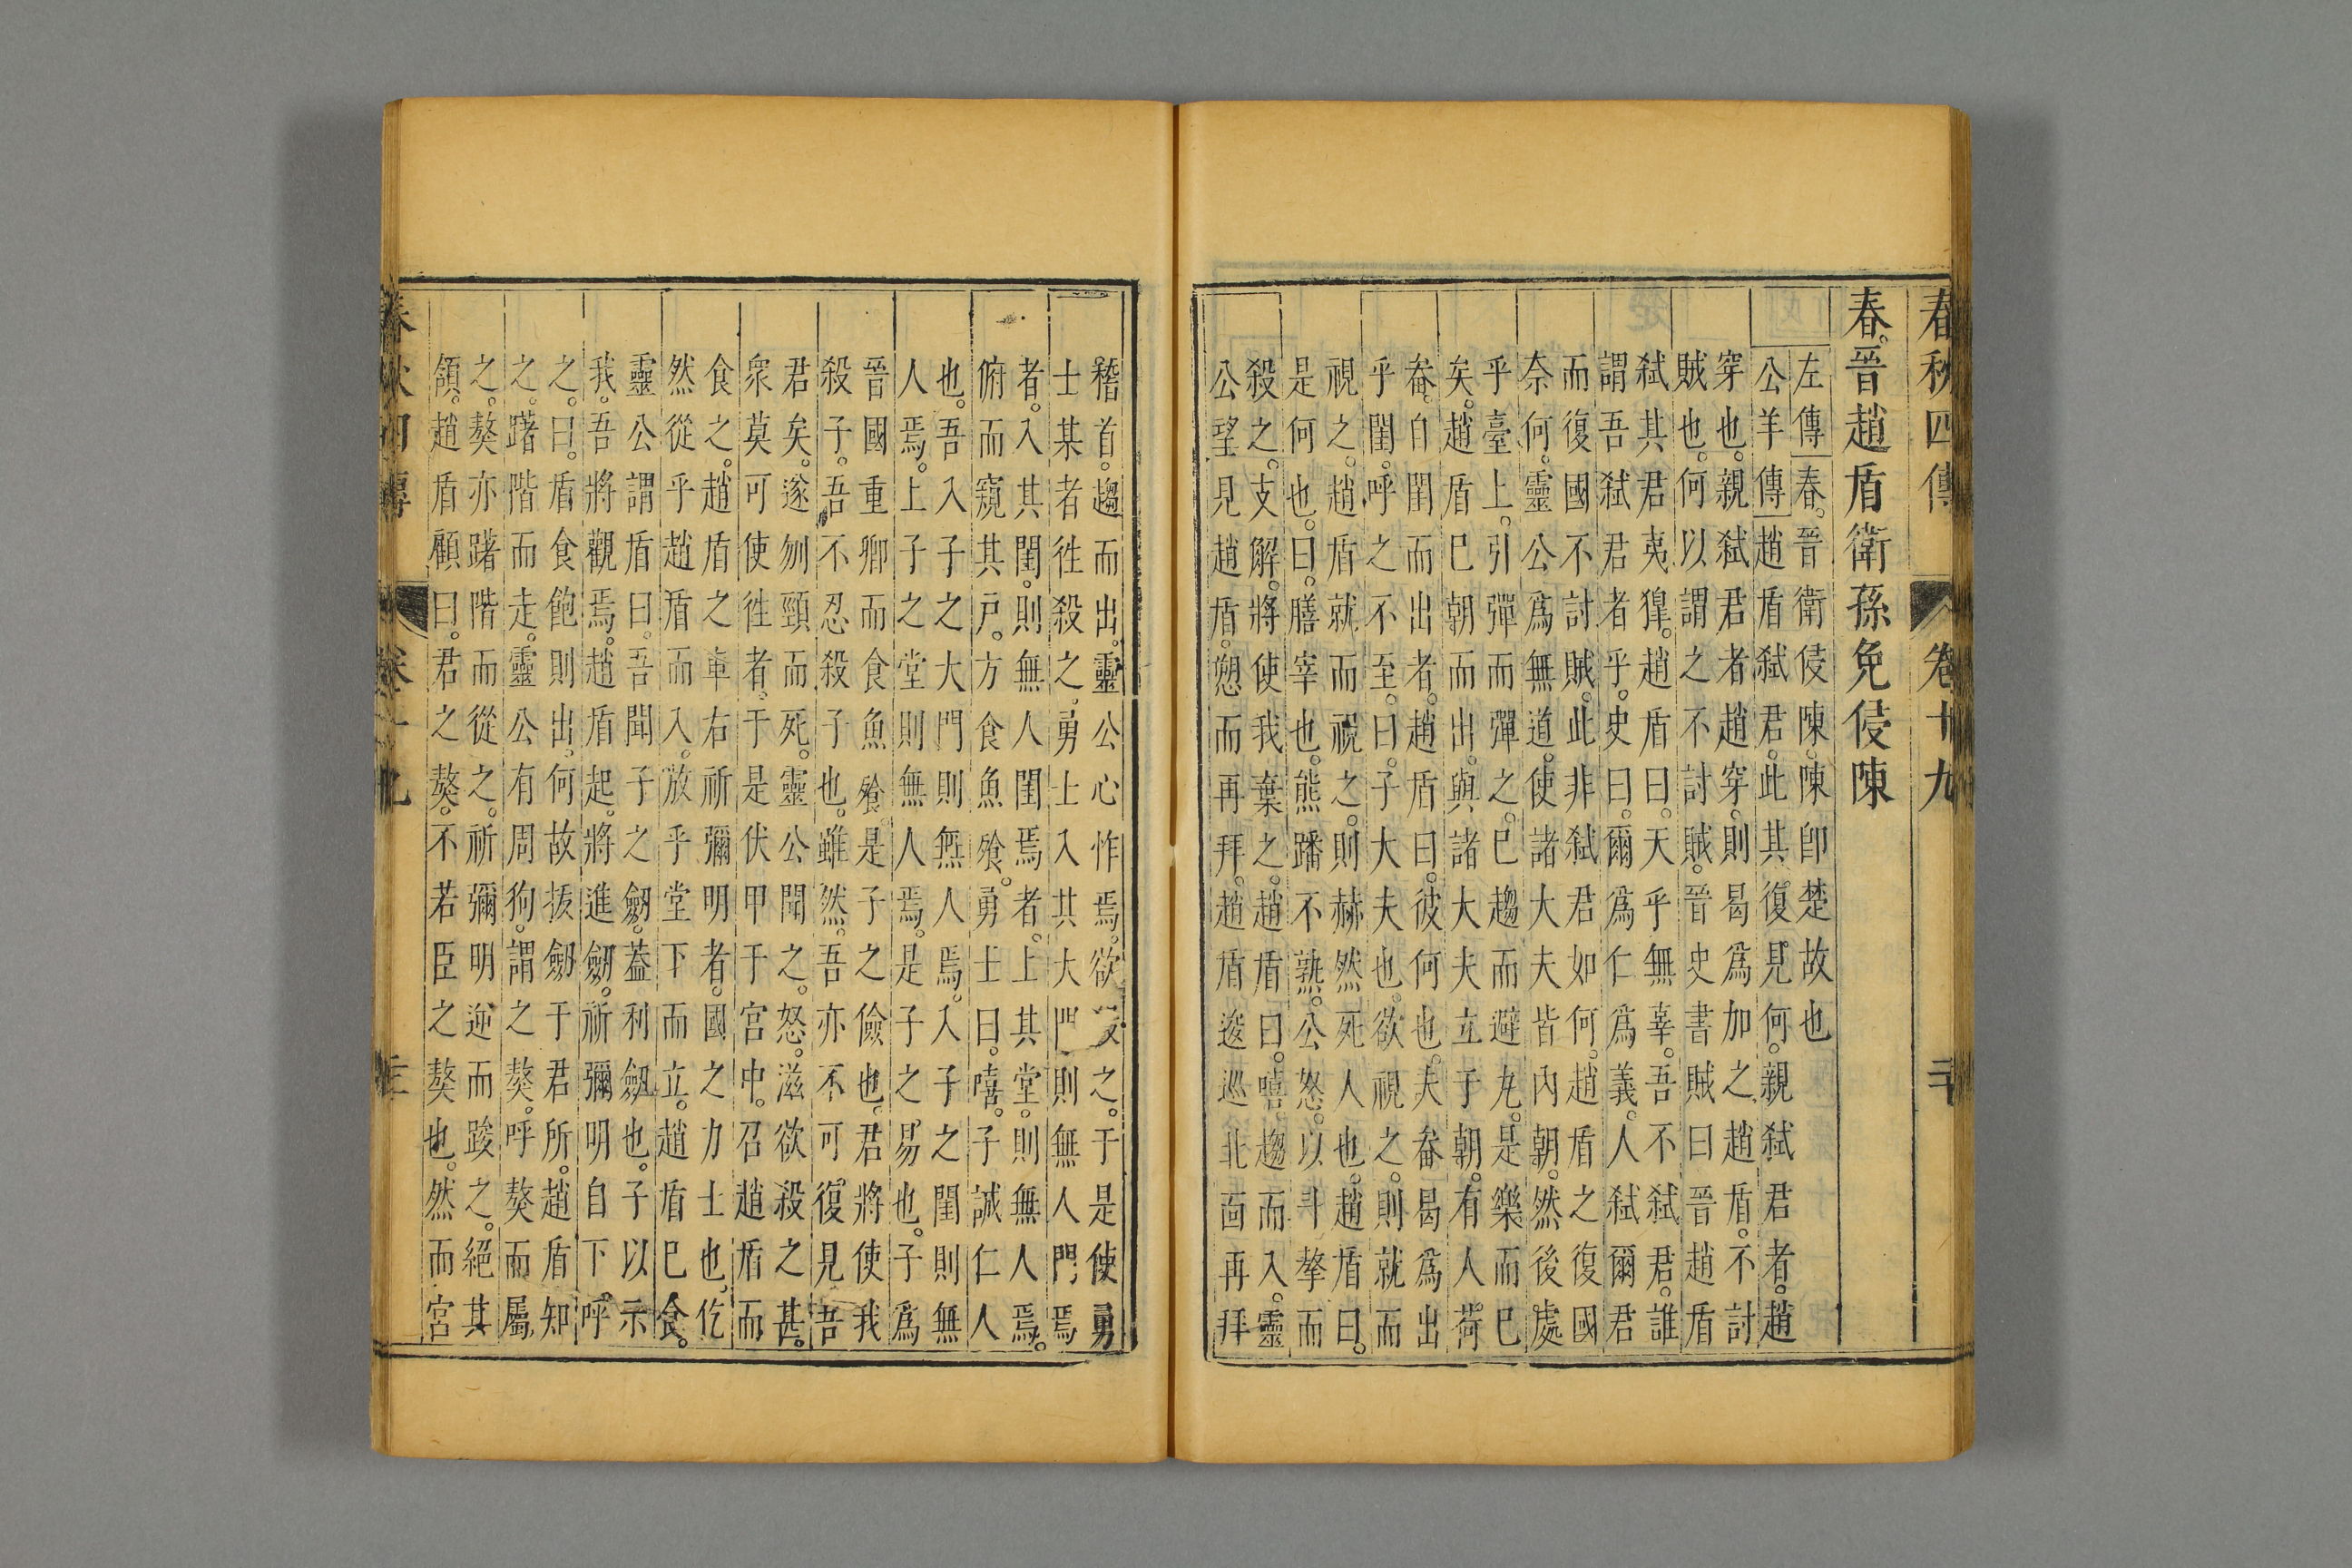 春秋四傳 卷十九 二
春。晉趙盾衛孫免侵陳
左傳春。晉衛侵陳。陳卽楚故也
公羊傳趙盾弑君。此其復見何。親弑君者。趙
穿也。親弑君者趙穿。則曷爲加之趙盾。不討
賊也。何以謂之不討賊。晉史書賊曰晉趙盾
弑其君夷獋。趙盾曰。天乎無辜。吾不弑君。誰
謂吾弑君者乎。史曰。爾爲仁爲義。人弑爾君
而復國不討賊。此非弑君如何。趙盾之復國
奈何。靈公爲無道。使諸大夫皆內朝。然後處
乎臺上。引彈而彈之。巳趨而避丸。是樂而巳
矣。趙盾巳朝而出。與諸大夫立于朝。有人荷
畚。自閨而出者。趙盾曰。彼何也。夫畚曷爲出
乎閨。呼之不至。曰。子大夫也。欲視之。則就而
視之。趙盾就而視之。則赫然死人也。趙盾曰。
是何也。曰。膳宰也。熊蹯不熟。公怒。以斗摮而
殺之。支解。將使我棄之。趙盾曰。嘻。趨而入。靈
公望見趙盾。愬而再拜。趙盾逡巡北面再拜
稽首。趨而出。靈公心怍焉。欲殺之。于是使勇
士某者徃殺之。勇士入其大門。則無人門焉
者。入其閨。則無人閨焉者。上其堂。則無人焉。
俯而窺其戸。方食魚飱。勇士曰。嘻。子誠仁人
也。吾入子之大門則無人焉。入子之閨則無
人焉。上子之堂則無人焉。是子之易也。子爲
晉國重卿而食魚飱。是子之儉也。君將使我
殺子。吾不忍殺子也。雖然。吾亦不可復見吾
君矣。遂刎頸而死。靈公聞之。怒。滋欲殺之甚。
衆莫可使徃者。于是伏甲于宮中。召趙盾而
食之。趙盾之車右祈彌明者。國之力士也。仡
然從乎趙盾而入。放乎堂下而立。趙盾巳食。
靈公謂盾曰。吾聞子之劒。蓋利劒也。子以示
我。吾將觀焉。趙盾起。將進劒。祈彌明自下呼
之。曰。盾食飽則出。何故拔劒于君所。趙盾知
之。躇階而走。靈公有周狗。謂之獒。呼獒而屬
之。獒亦躇階而從之。祈彌明迎而踆之。絕其
頷。趙盾顧曰。君之獒。不若臣之獒也。然而宮